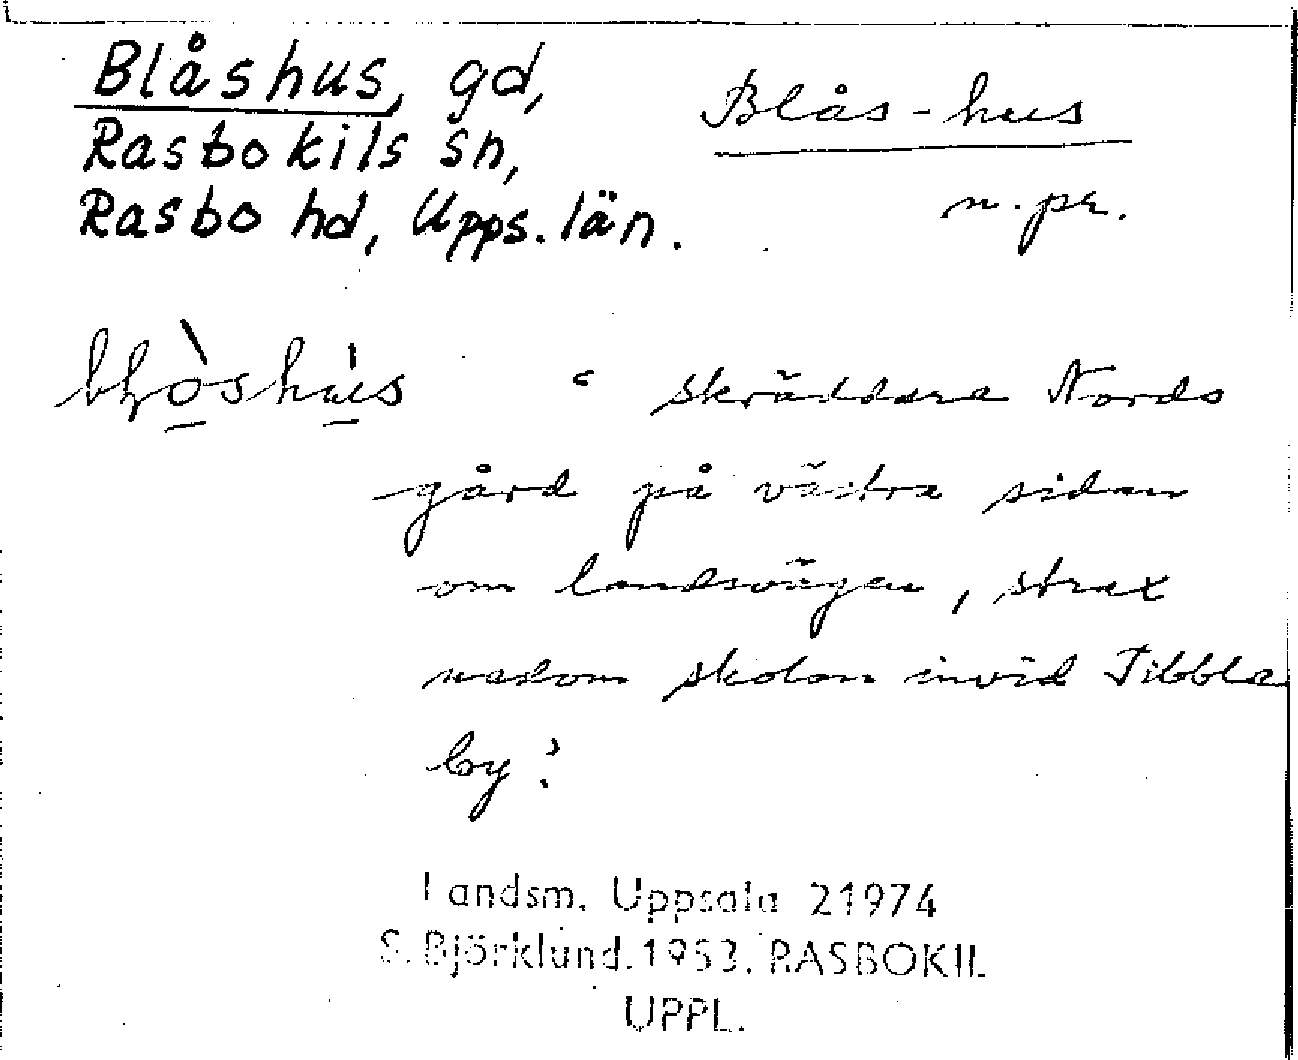 Blåshus, gd,
Rasbokils sn,
Rasbo hd, Upps. län.
Blås-hus
n. pr.
skräddare Nords
gård på västra sidan
om landsvägen, strax
nedom skolan invid Tibbla
by'.
Landsm. Uppsala 21974
S. Björklund. 1953. RASBOKIL
UPPL.